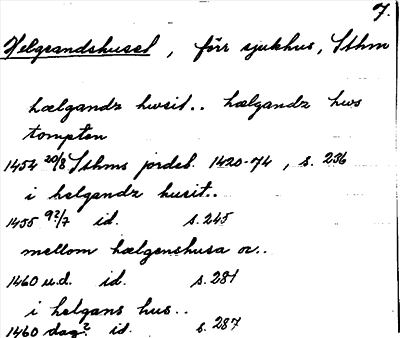 7.
Helgeandshuset, förr sjukhus, Sthm
hælgandz hwsit.. hælgandz hws
tompten
1454 20/8 Sthms jordeb. 1420-74, s. 236
i helgandz husit..
1455 9?/7 id. s. 245
mellom hælgenshusa oc..
1460 u.d. id. s. 281
i helgans hus..
1460 dag? id. s. 287